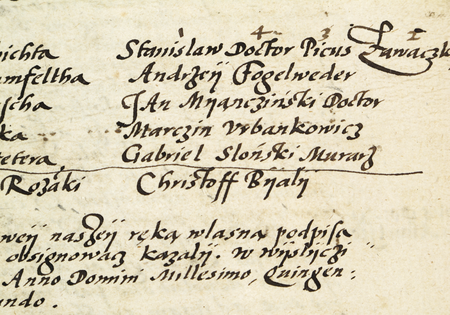 4 3 1
Stanisław Doctor Picus Zawaczk
Andrzeij Fogelweder
JAn Mijancziński Doctor
ka Marczin Vrbankowicz
etera Gabriel Słoński Murarz
Rozaki Christoff Bijalij
weij naszeij ręką własną podpisa
obsignowacz kazalij. w wijslijczi
Anno Domini Millesimo, Quingen:
undo.